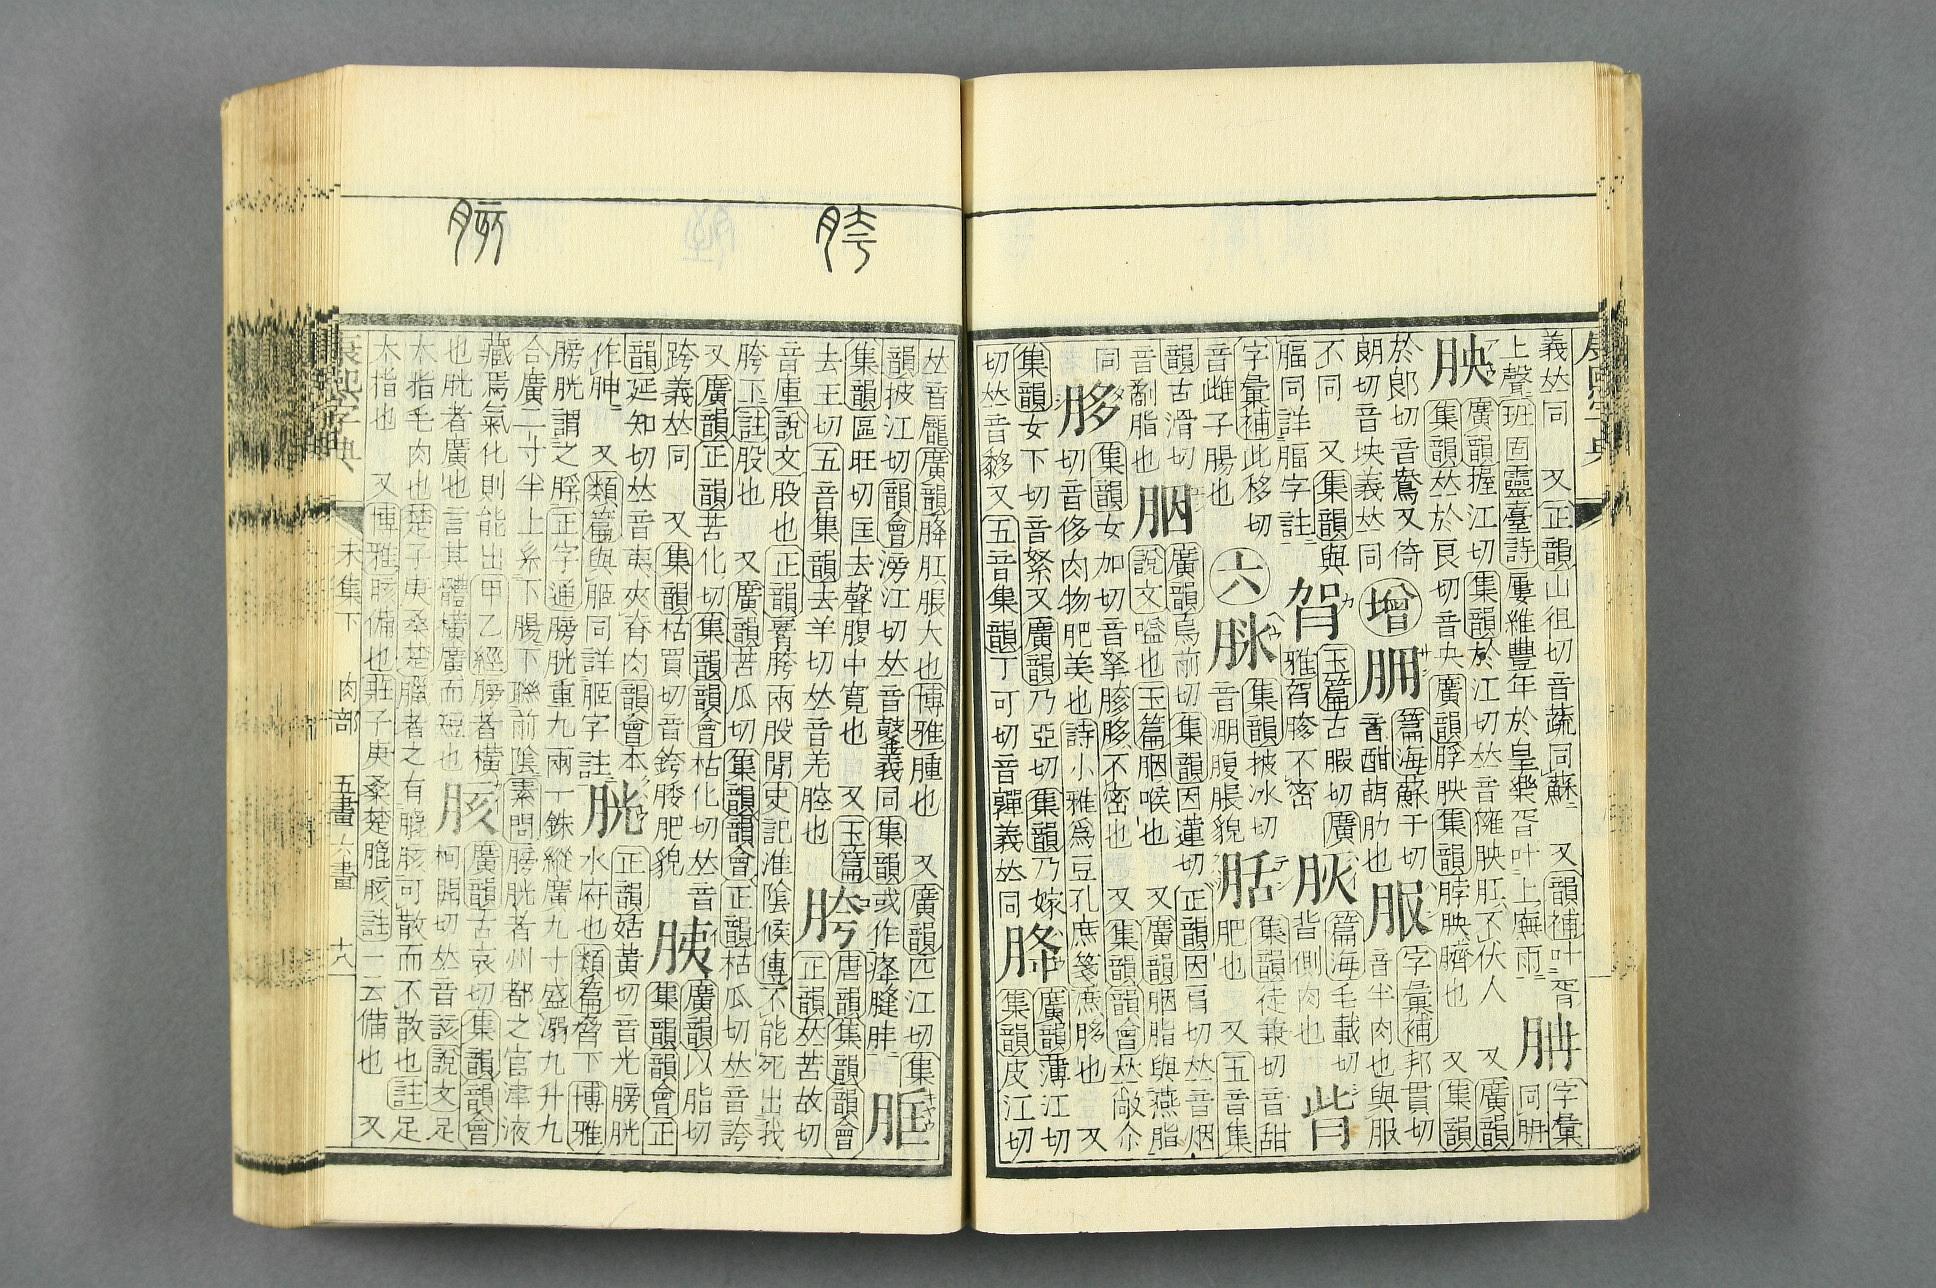 義𠀤同　又正韻山徂切音蔬同蘇　又韻補叶胥
上聲班固靈臺詩屢維豐年於皇樂胥叶上廡雨
字彙
同
胦
廣韻握江切集韻於江切𠀤音胦肛不伏人　又廣韻
集韻𠀤於良切音央廣韻脬胦集韻脖胦臍也　又集韻
於郎切音鴦又倚
朗切音坱義𠀤同
增
篇海蘇干切
音酣萠肋也
服
字彙補邦貫切
音半肉也與服
不同　又集韻與
腷同詳腷字註
玉篇古暇切廣
雅不密
篇海毛載切
背側肉也
胔
字彙補此移切
音雌子腸也
六
集韻披冰切
音漰腹脹貌
集韻徒兼切音甜
肥也　又五音集
韻古滑切
音劀脂也
胭
廣韻烏前切集韻因蓮切正韻因肩切𠀤音烟
說文嗌也玉篇胭喉也　又廣韻胭脂與燕脂
同
胣
集韻女加切音拏不密也　又集韻韻會𠀤敞尒
切音侈肉物肥美也詩小雅爲豆孔庶箋庶也　又
集韻女下切音絮又廣韻乃亞切集韻乃嫁
切𠀤音又五音集韻丁可切音嚲義𠀤同
胮
廣韻薄江切
集韻皮江切
胯
胻
𠀤音龐廣韻胮肛脹大也博雅腫也　又廣韻匹江切集
韻披江切韻會滂江切𠀤音義同集韻或作胮
胩
集韻區旺切匡去聲腹中寬也　又玉篇
去王切五音集韻去羊切𠀤音羌腔也
胯
唐韻集韻韻會
正韻𠀤苦故切
音庫說文股也正韻奯胯兩股閒史記淮陰侯傳不能死出我
胯下註股也　又廣韻苦瓜切集韻韻會正韻枯瓜切𠀤音誇
又廣韻正韻苦化切集韻韻會枯化切𠀤音
跨義𠀤同　又集韻枯買切音銙肥貌
胰
廣韻以脂切
集韻韻會正
韻延知切𠀤音夷夾脊肉韻會本
作胂　又類篇與䏰同詳䏰字註
胱
正韻姑黃切音光膀胱
水府也類篇脅下博雅
膀胱謂之脬正字通膀胱重九兩一銖縱廣九寸盛溺九升九
合廣二寸半上系下腸下聯前陰素問膀胱者州都之官津液
藏焉氣化則能出甲乙經膀者橫
也胱者廣也言其體橫廣而短也
胲
廣韻古哀切集韻韻會
柯開切𠀤音該說文足
大指毛肉也莊子庚桑楚臘者之有膍胲可散而不散也註足
大指也　又博雅胲備也莊子庚桑楚膍胲註一云備也　又
康熙字典
未集下　肉部　五畫六畫　十八